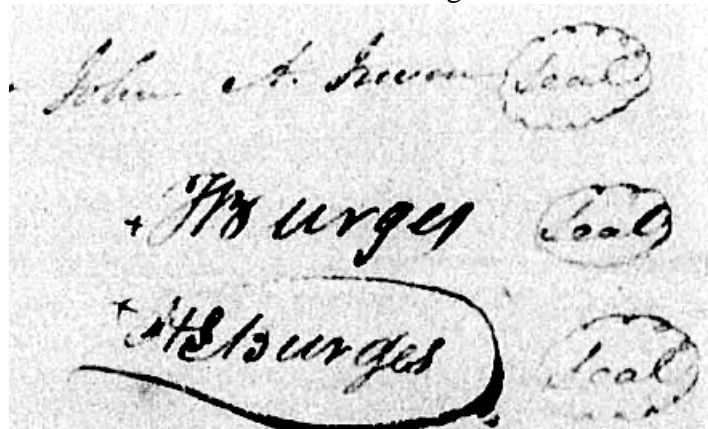 John A. Irwin Seal
+ JW Burges Seal
+ A S Burges Seal